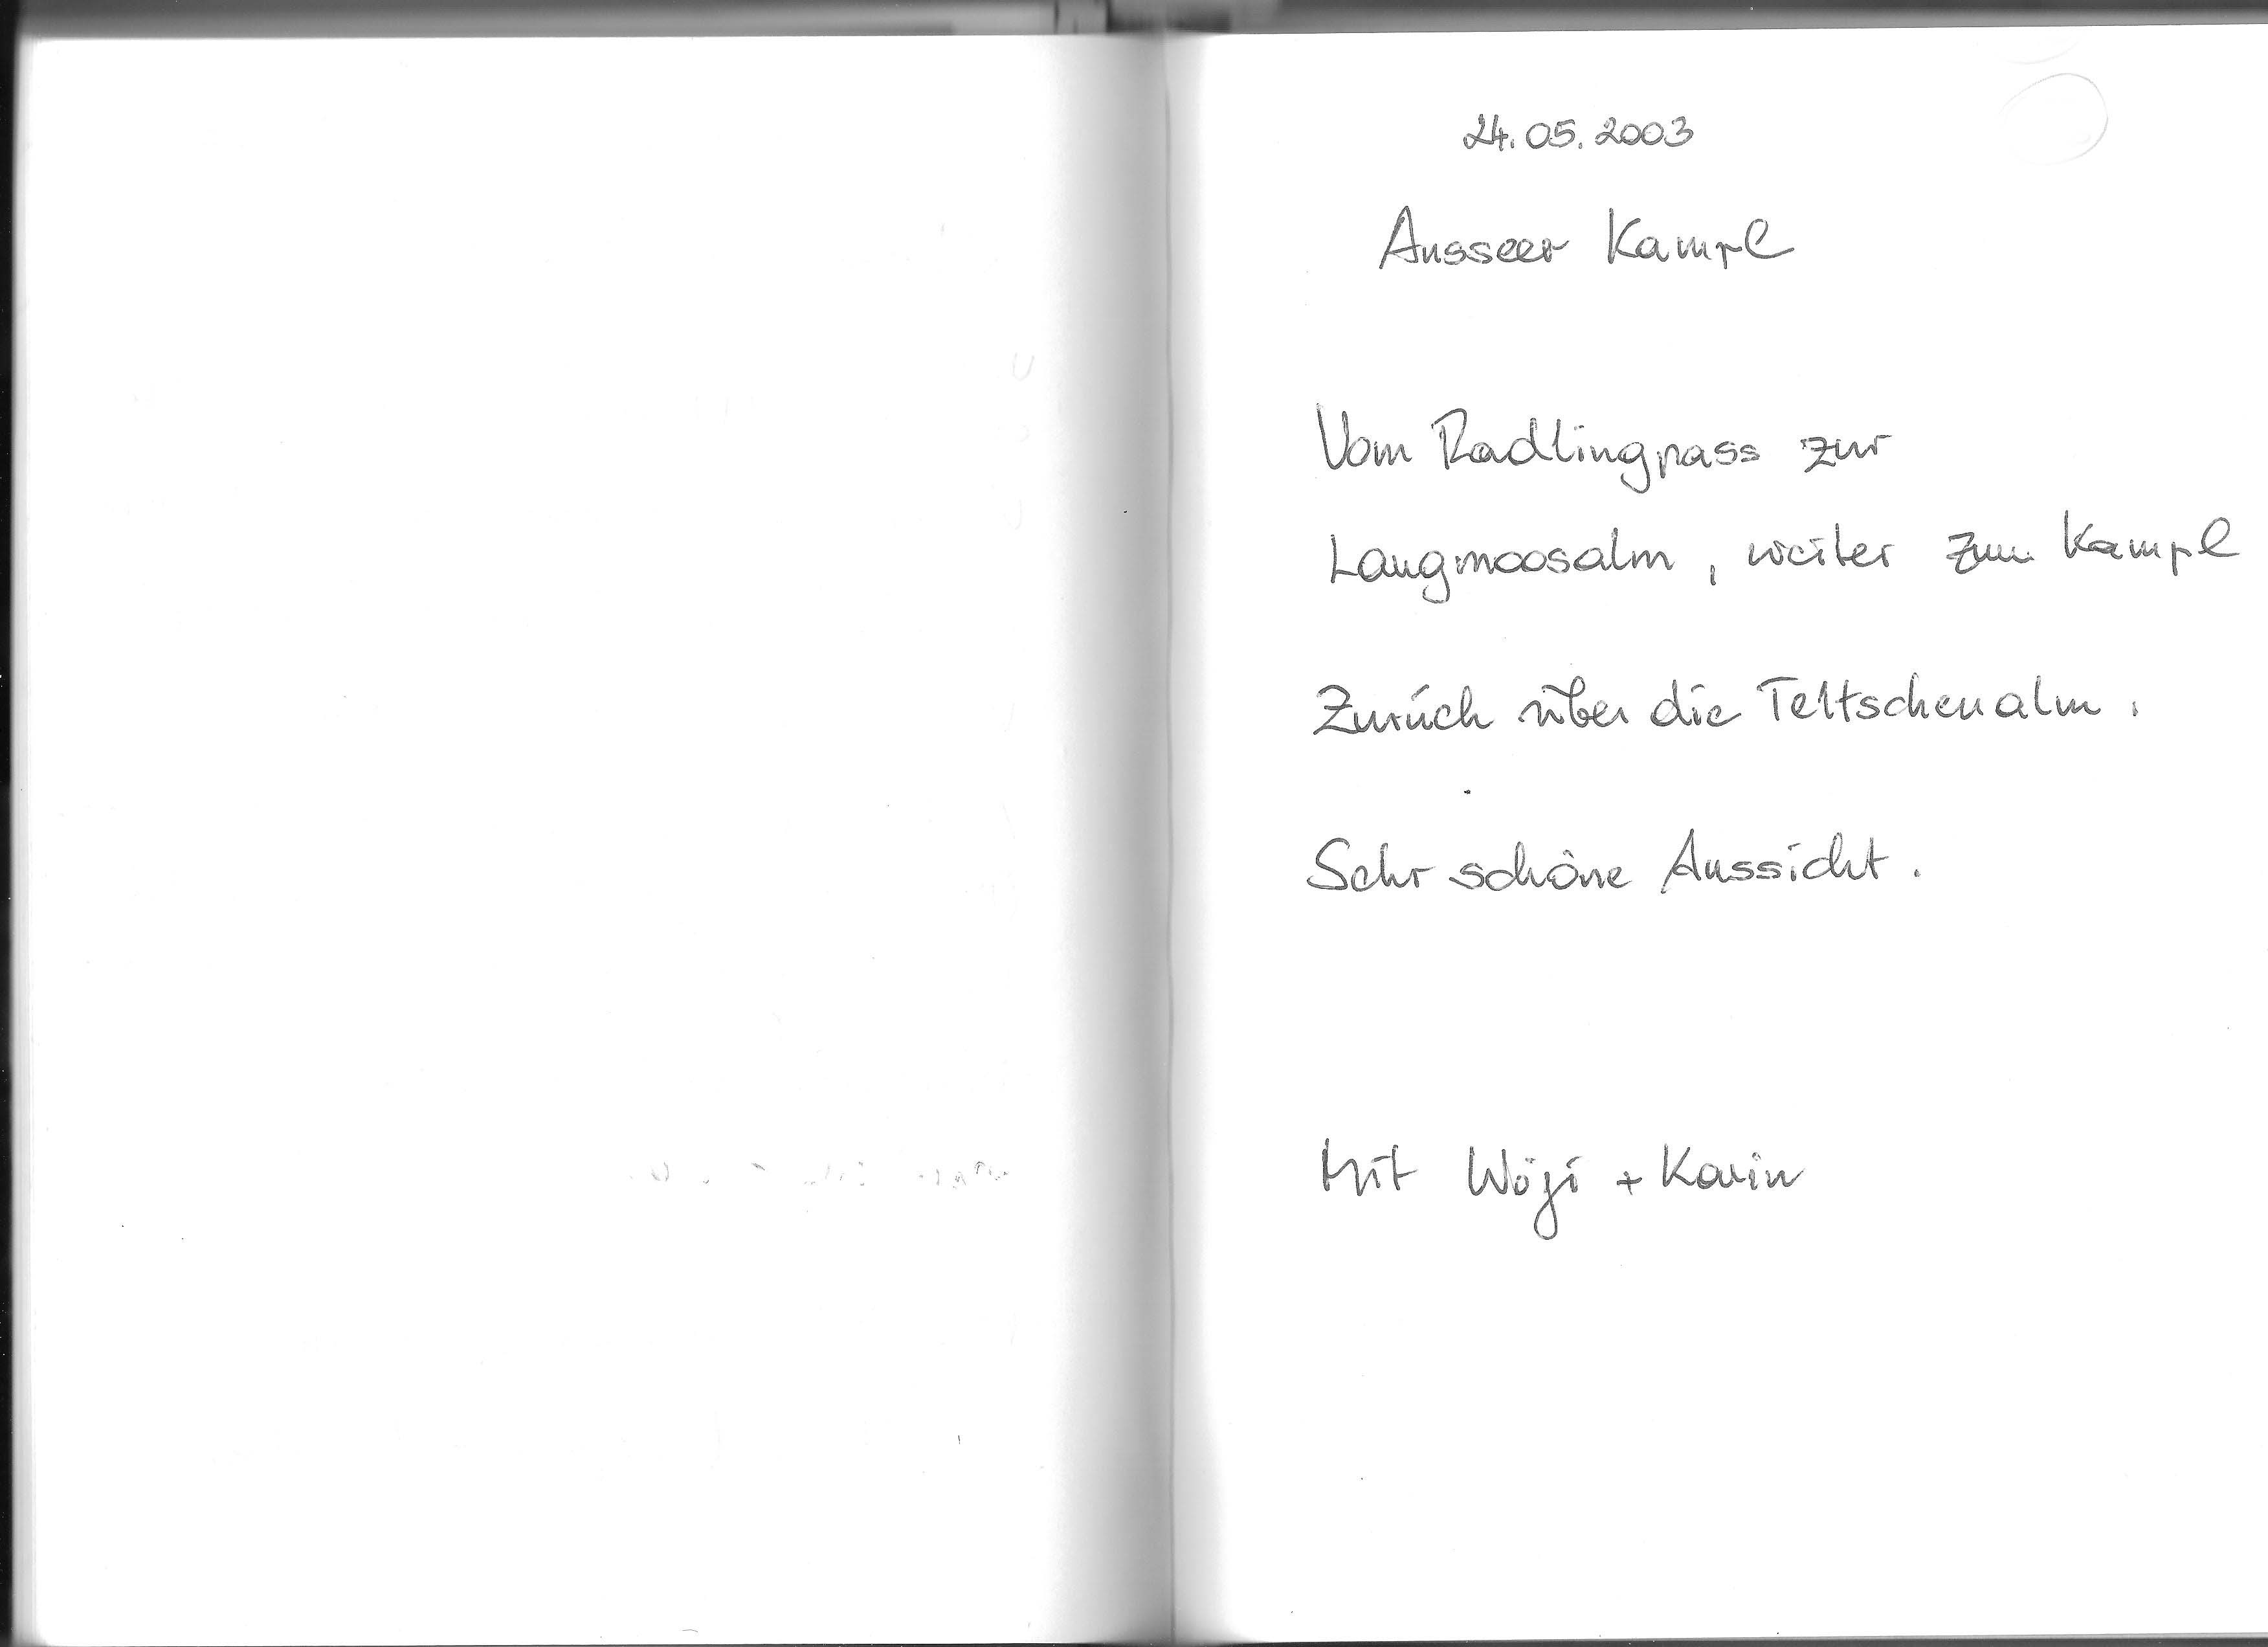 24.05.2003
Ausseer Kampl
Vom Radlingpass zur
Langmoosalm, weiter zum Kampl
Zurück über die Teltschenalm.
Sehr schöne Aussicht.
Mit Wögi + Karin